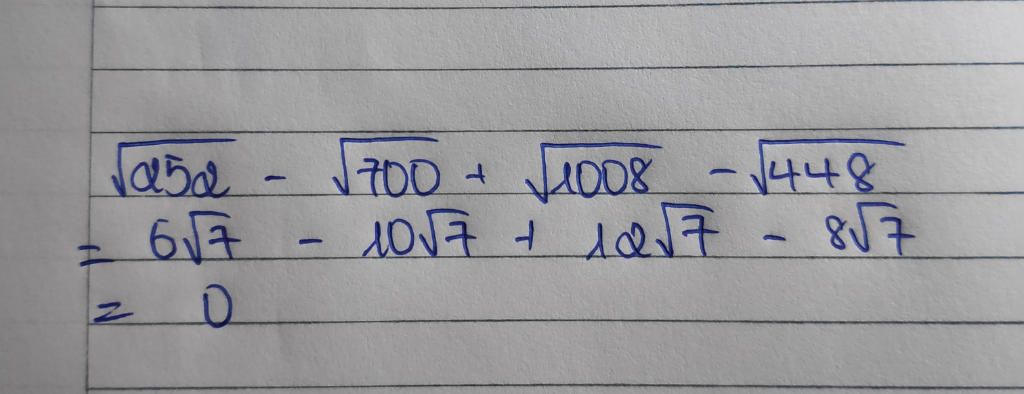 √252 - √700 + √1008 - √448
= 6√7 - 10√7 + 12√7 - 8√7
= 0